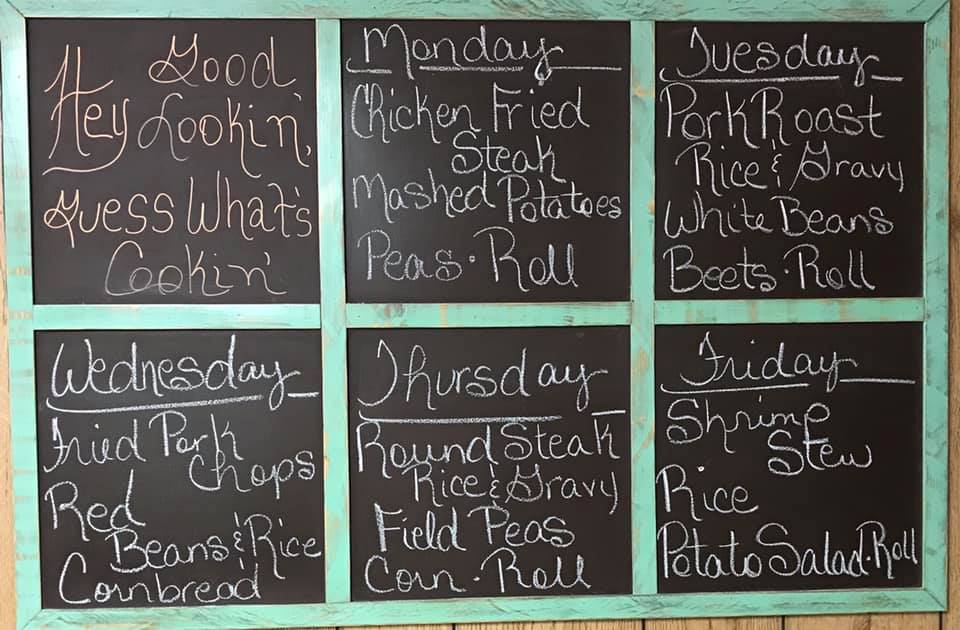 Good
Hey Lookin',
Guess What's
Cookin'
Monday
Chicken Fried
Steak
Mashed Potatoes
Peas · Roll
Tuesday
Pork Roast
Rice & Gravy
White Beans
Beets · Roll
Wednesday
Fried Pork
Chops
Red
Beans & Rice
Cornbread
Thursday
Round Steak
Rice & Gravy
Field Peas
Corn · Roll
Friday
Shrimp
Stew
Rice
Potato Salad · Roll